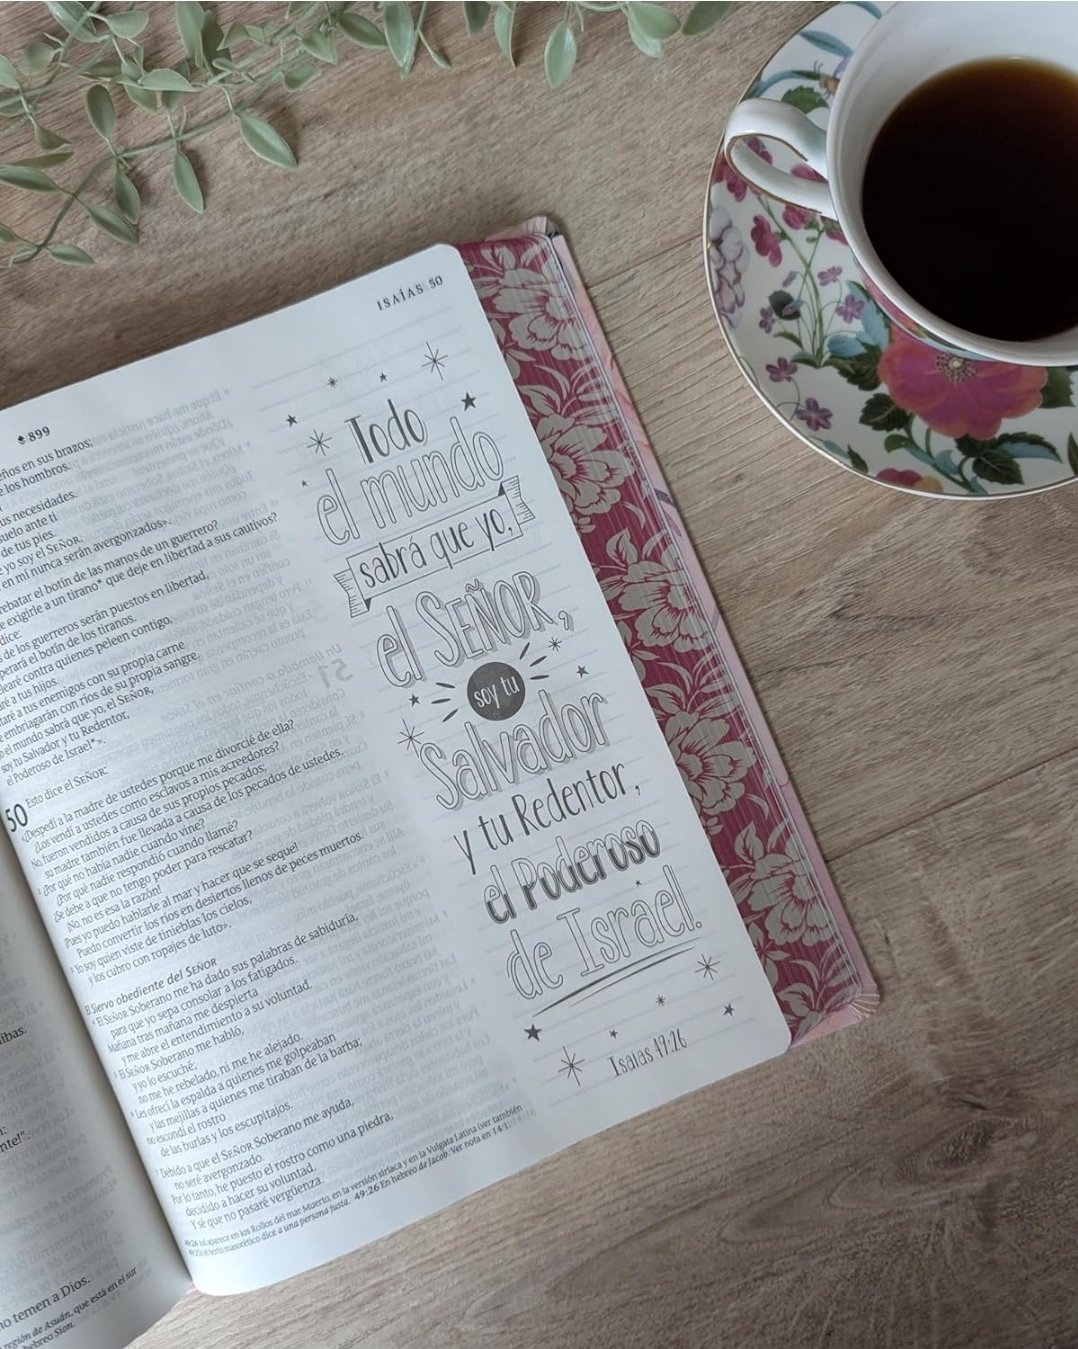 ISAÍAS 50
899
eños en sus brazos;
e los hombros.
us necesidades.
suelo ante ti
de tus pies.
e yo soy el SEÑOR.
en mí nunca serán avergonzados».
rebatar el botín de las manos de un guerrero?
e exigirle a un tirano* que deje en libertad a sus cautivos?
dice:
de los guerreros serán puestos en libertad,
perará el botín de los tiranos.
learé contra quienes peleen contigo,
aré a tus hijos.
taré a tus enemigos con su propia carne
embriagarán con ríos de su propia sangre.
o el mundo sabrá que yo, el SEÑOR,
soy tu Salvador y tu Redentor,
el Poderoso de Israel*».
50 Esto dice el SEÑOR:
«¿Despedí a la madre de ustedes porque me divorcié de ella?
¿Los vendí a ustedes como esclavos a mis acreedores?
No, fueron vendidos a causa de sus propios pecados;
su madre también fue llevada a causa de los pecados de ustedes.
2 ¿Por qué no había nadie cuando vine?
¿Por qué nadie respondió cuando llamé?
¿Se debe a que no tengo poder para rescatar?
¡No, no es esa la razón!
¡Pues yo puedo hablarle al mar y hacer que se seque!
Puedo convertir los ríos en desiertos llenos de peces muertos.
3 Yo soy quien viste de tinieblas los cielos,
y los cubro con ropajes de luto».
El Siervo obediente del SEÑOR
4 El SEÑOR Soberano me ha dado sus palabras de sabiduría,
para que yo sepa consolar a los fatigados.
Mañana tras mañana me despierta
y me abre el entendimiento a su voluntad.
5 El SEÑOR Soberano me habló,
y yo lo escuché;
no me he rebelado, ni me he alejado.
6 Les ofrecí la espalda a quienes me golpeaban
y las mejillas a quienes me tiraban de la barba;
no escondí el rostro
de las burlas y los escupitajos.
7 Debido a que el SEÑOR Soberano me ayuda,
no seré avergonzado.
Por lo tanto, he puesto el rostro como una piedra,
decidido a hacer su voluntad.
Y sé que no pasaré vergüenza.
49:24 Así aparece en los Rollos del mar Muerto, en la versión siríaca y en la Vulgata Latina (ver también
49:25); el texto masorético dice a una persona justa. 49:26 En hebreo de Jacob. Ver nota en 14:1.
Todo
el mundo
sabrá que yo,
el SEÑOR,
soy tu
Salvador
y tu Redentor,
el Poderoso
de Israel.
Isaías 49:26
ibas.
í:
nte!".
no temen a Dios.
región de Asuán, que está en el sur
hebreo Sion.